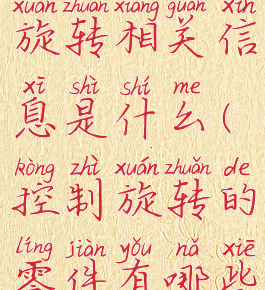 xuán zhuǎn xiāng guān xìn
旋转相关信
xī shì shí me
息是什么(
kòng zhì xuán zhuǎn de
控制旋转的
líng jiàn yǒu nǎ xiē
零件有哪些